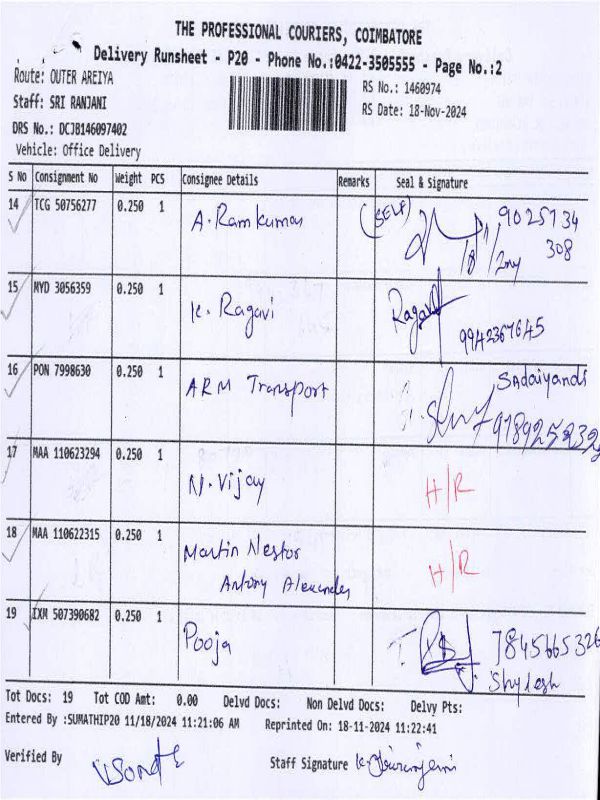 THE PROFESSIONAL COURIERS, COIMBATORE
Delivery Runsheet - P20 - Phone No.:0422-3505555 - Page No.:2
Route: OUTER AREIYA
RS No.: 1460974
Staff: SRI RANJANI
RS Date: 18-Nov-2024
DRS No.: DCJ8146097402
Vehicle: Office Delivery
S No Consignment No Weight PCS Consignee Details Remarks Seal & Signature
14 TCG 50756277 0.250 1 A. Ramkumar (SELF) 9025134
308
15 MYD 3056359 0.250 1 K. Ragavi Ragavi
9942367645
16 PON 7998630 0.250 1 ARM Transport Sadaiyandi
9789258232
17 MAA 110623294 0.250 1 N. Vijay H/R
18 MAA 110622315 0.250 1 Martin Nestor H/R
Antony Alexander
19 IXM 507390682 0.250 1 Pooja 7845665326
Shylesh
Tot Docs: 19 Tot COD Amt: 0.00 Delvd Docs: Non Delvd Docs: Delvy Pts:
Entered By :SUMATHIP20 11/18/2024 11:21:06 AM Reprinted On: 18-11-2024 11:22:41
Verified By
Staff Signature